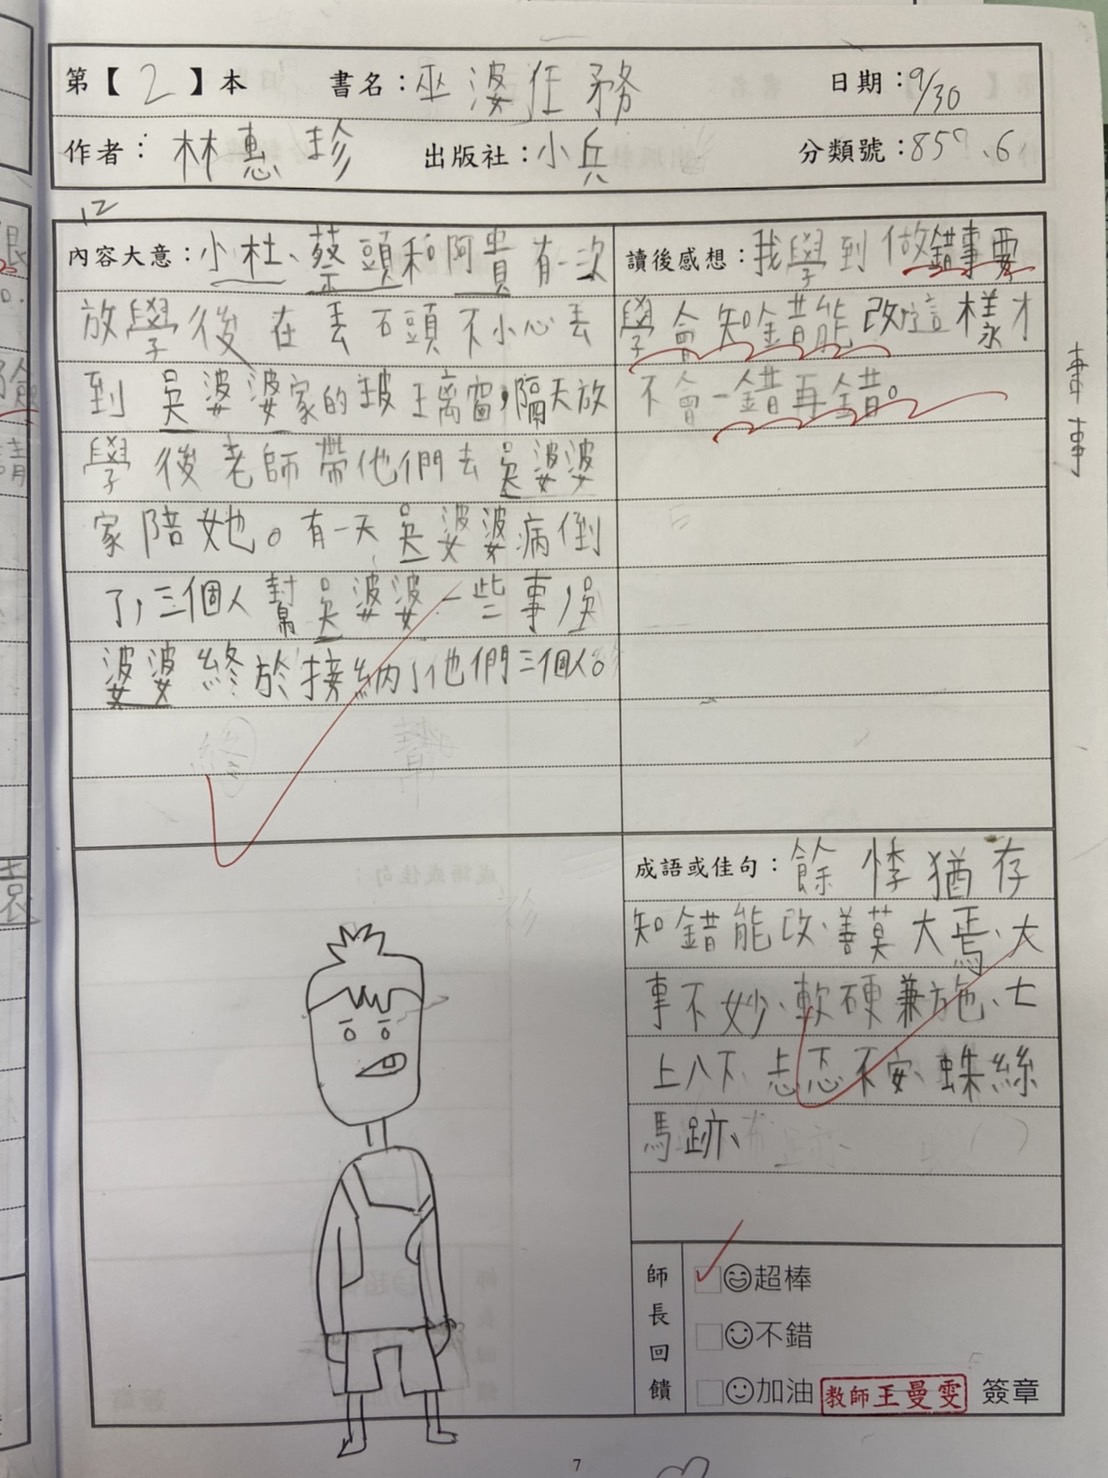 第【2】本 書名：巫婆任務 日期：9/30
作者：林惠珍 出版社：小兵 分類號：859.6
12
內容大意：小杜、蔡頭和阿貴有一次
放學後在丟石頭不小心丟
到吳婆婆家的玻璃窗，隔天放
學後老師帶他們去吳婆婆
家陪她。有一天吳婆婆病倒
了，三個人幫吳婆婆一些事，吳
婆婆終於接納了他們三個人。
讀後感想：我學到做錯事要
學會知錯能改這樣才
不會一錯再錯。
事
事
成語或佳句：餘悸猶存
知錯能改、善莫大焉、大
事不妙、軟硬兼施、七
上八下、忐忑不安、蛛絲
馬跡、
師長回饋
超棒
不錯
加油 教師王曼雯 簽章
7